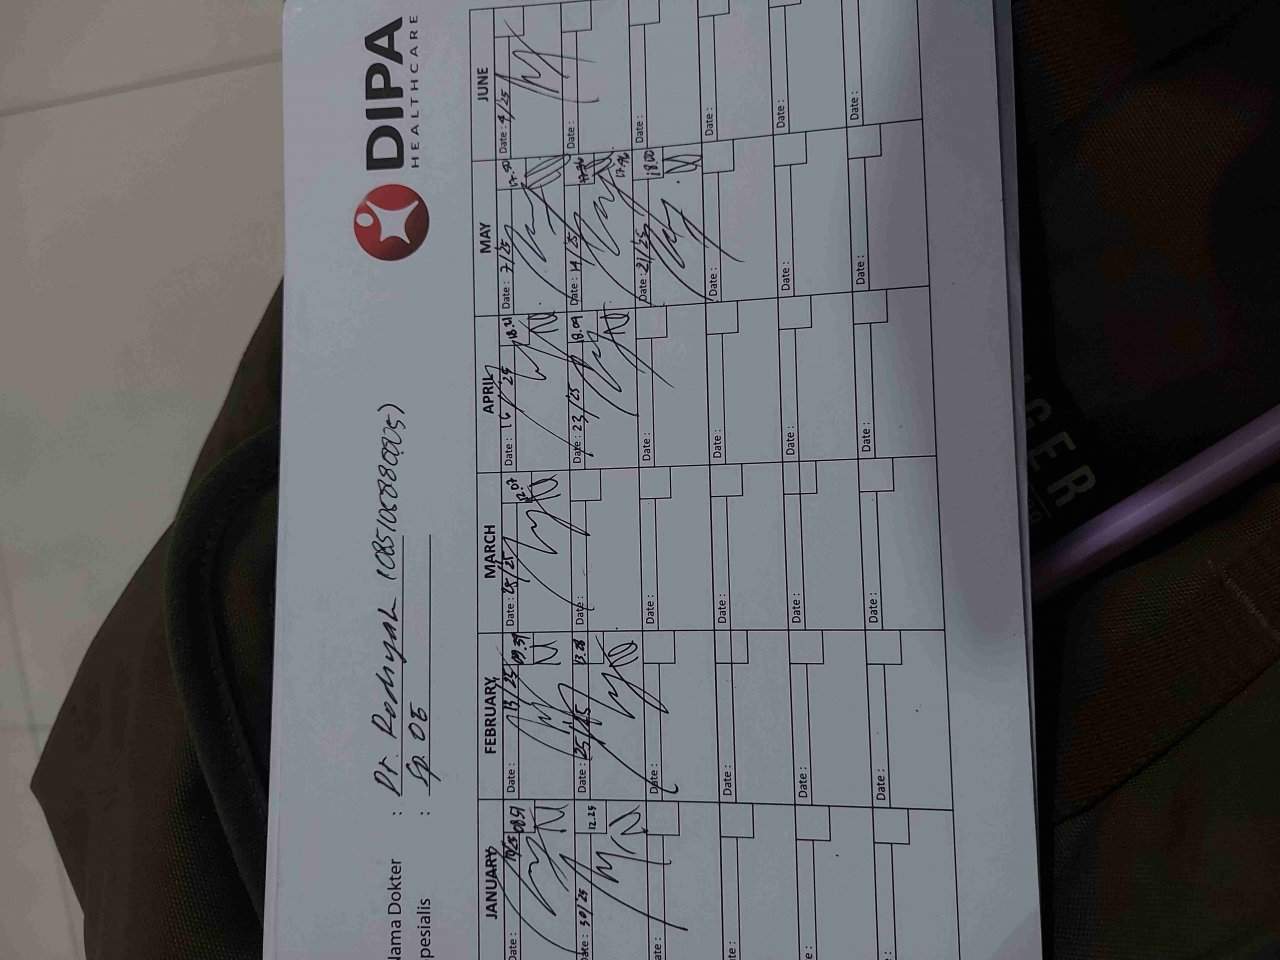 DIPA
HEALTHCARE
Nama Dokter : Dr. Rodiyah
Spesialis : Sp OG
JANUARY FEBRUARY MARCH APRIL MAY JUNE
Date : 08.51 Date : 13/25 09.37 Date : 25/25 12.07 Date : 16/25 18.21 Date : 7/25 17.50 Date : 4/25
Date : 30/25 12.25 Date : 25/25 13.28 Date : Date : 23/25 18.09 Date : 14/25 17.46 Date :
Date : Date : Date : Date : Date : 21/25 18.00 Date :
Date : Date : Date : Date : Date : Date :
Date : Date : Date : Date : Date : Date :
Date : Date : Date : Date : Date : Date :
GER